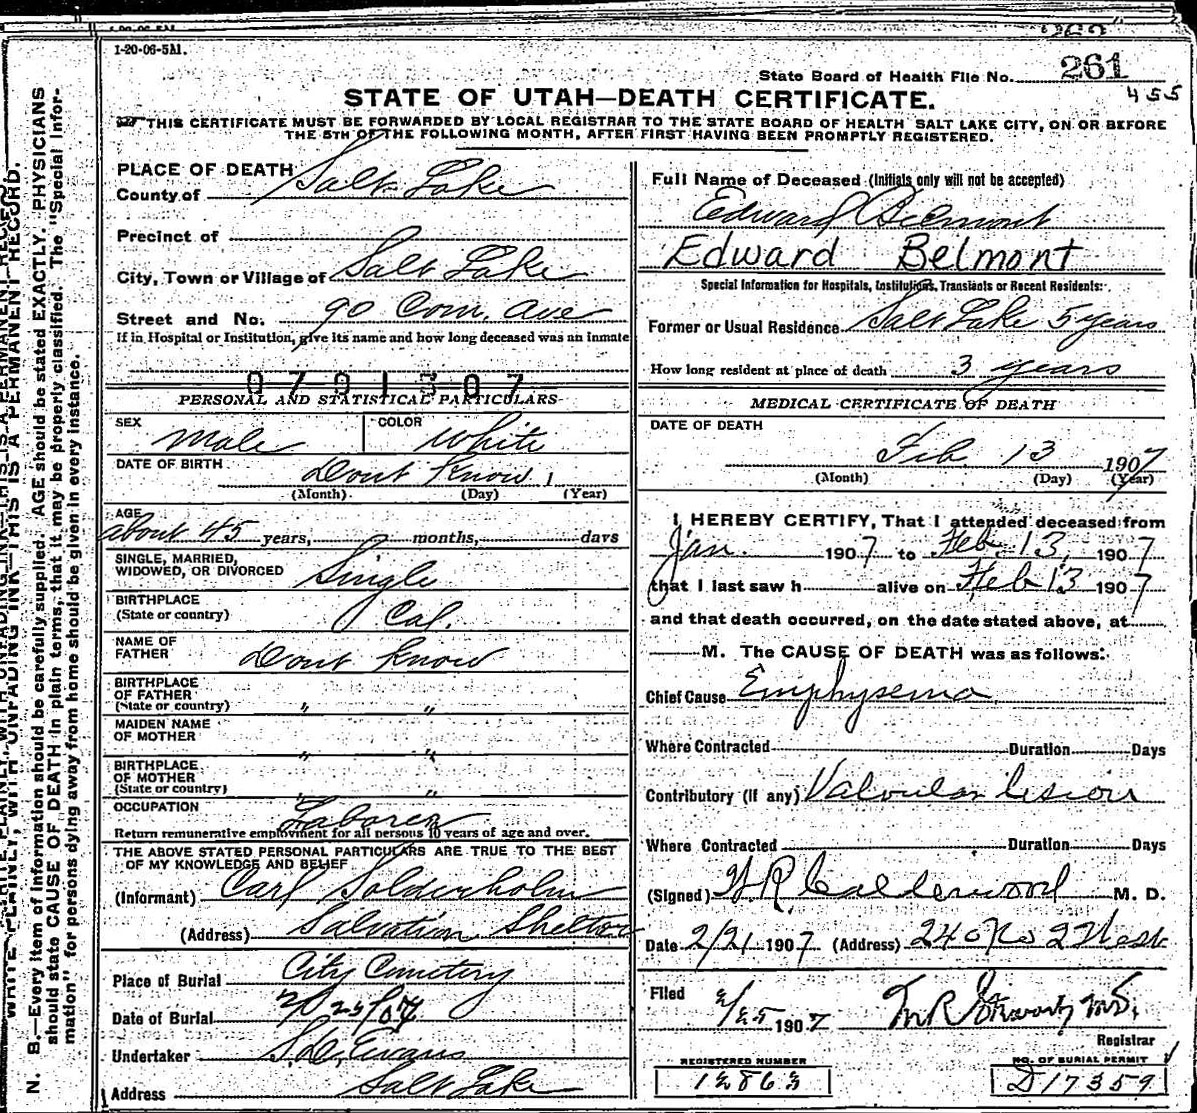 1-20-06-5M.
State Board of Health File No. 261
455
STATE OF UTAH—DEATH CERTIFICATE.
THIS CERTIFICATE MUST BE FORWARDED BY LOCAL REGISTRAR TO THE STATE BOARD OF HEALTH SALT LAKE CITY, ON OR BEFORE
THE 5TH OF THE FOLLOWING MONTH, AFTER FIRST HAVING BEEN PROMPTLY REGISTERED.
WRITE PLAINLY, WITH UNFADING INK—THIS IS A PERMANENT RECORD.
N. B.—Every item of Information should be carefully supplied. AGE should be stated EXACTLY. PHYSICIANS
should state CAUSE OF DEATH in plain terms, that it may be properly classified. The "Special Infor-
mation" for persons dying away from home should be given in every instance.
PLACE OF DEATH
County of Salt Lake
Precinct of
City, Town or Village of Salt Lake
Street and No. 90 Com. Ave
If in Hospital or Institution, give its name and how long deceased was an inmate
0701307
PERSONAL AND STATISTICAL PARTICULARS
SEX male COLOR white
DATE OF BIRTH Dont Know 1
(Month) (Day) (Year)
AGE
about 45 years, months, days
SINGLE, MARRIED,
WIDOWED, OR DIVORCED Single
BIRTHPLACE
(State or country) Cal.
NAME OF
FATHER Dont Know
BIRTHPLACE
OF FATHER
(State or country) " "
MAIDEN NAME
OF MOTHER " "
BIRTHPLACE
OF MOTHER
(State or country) " "
OCCUPATION Laborer
Return remunerative employment for all persons 10 years of age and over.
THE ABOVE STATED PERSONAL PARTICULARS ARE TRUE TO THE BEST
OF MY KNOWLEDGE AND BELIEF
(Informant) Carl Solderholm
(Address) Salvation Shelter
Place of Burial City Cemetery
Date of Burial 2/25/07
Undertaker S.D. Evans
Address Salt Lake
Full Name of Deceased (Initials only will not be accepted)
Edward Belmont
Edward Belmont
Special Information for Hospitals, Institutions, Transients or Recent Residents:
Former or Usual Residence Salt Lake 5 years
How long resident at place of death 3 years
MEDICAL CERTIFICATE OF DEATH
DATE OF DEATH
Feb 13 1907
(Month) (Day) (Year)
I HEREBY CERTIFY, That I attended deceased from
Jan. 1907 to Feb. 13, 1907
that I last saw h alive on Feb 13 1907
and that death occurred, on the date stated above, at
M. The CAUSE OF DEATH was as follows:
Chief Cause Emphysema
Where Contracted Duration Days
Contributory (if any) Valvular lesion
Where Contracted Duration Days
(Signed) Calderwood M. D.
Date 2/21 1907 (Address) 240 No 2 West
Filed 2/25 1907 M.R. Stewart, M.D.
Registrar
REGISTERED NUMBER
12863
NO. OF BURIAL PERMIT
D17359